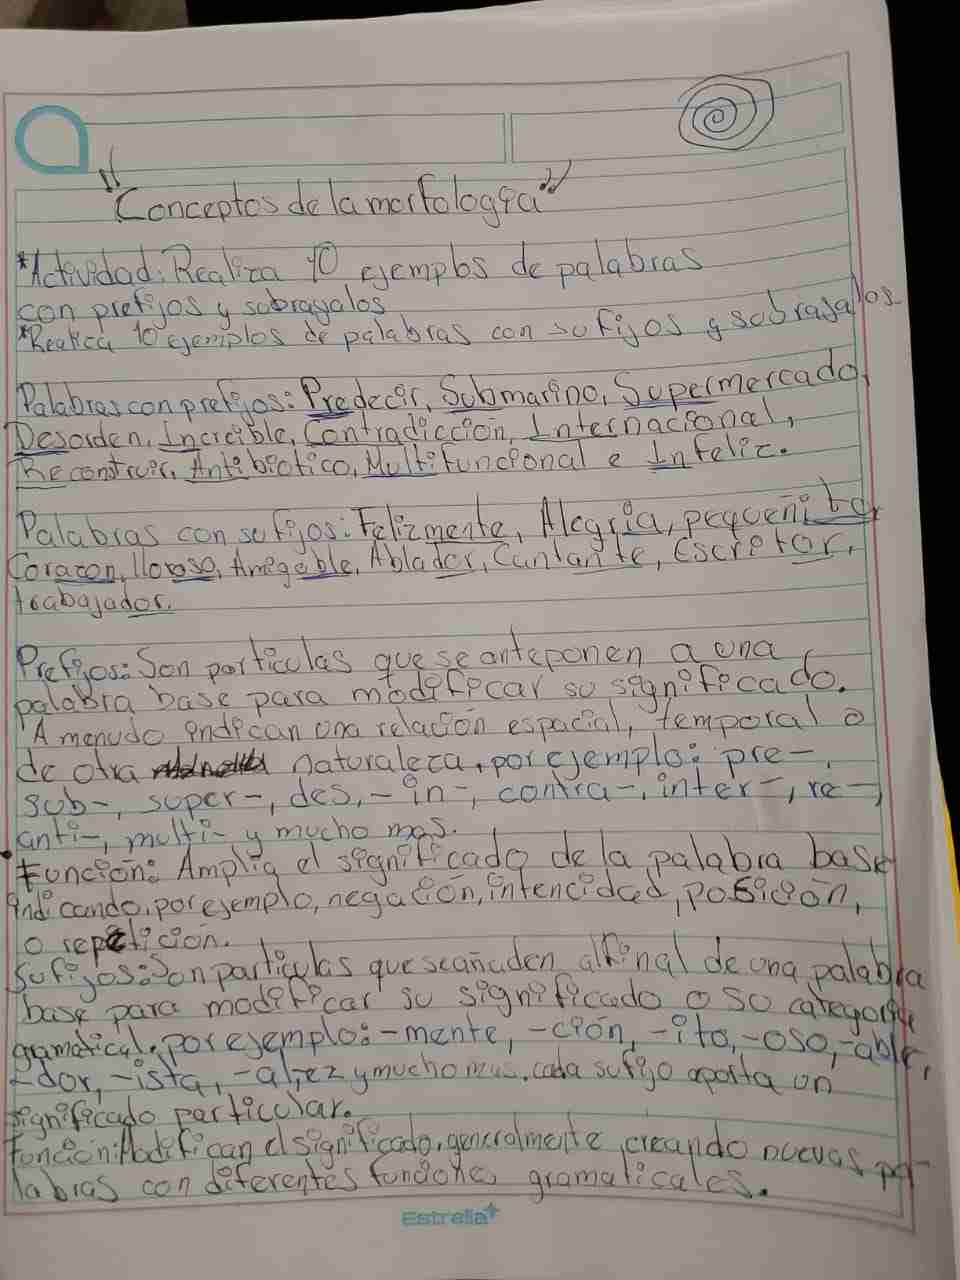 "Conceptos de la morfología"
*Actividad: Realiza 10 ejemplos de palabras
con prefijos y subrayalos
*Realiza 10 ejemplos de palabras con sufijos y subrayalos.
Palabras con prefijos: Predecir, Submarino, Supermercado,
Desorden, Increible, Contradicción, Internacional,
Reconstruir, Antibiotico, Multifuncional e Infeliz.
Palabras con sufijos: Felizmente, Alegria, pequeñito,
Corazon, lloroso, Amigable, Ablador, Cantante, Escritor,
trabajador.
Prefijos: Son particulas que se anteponen a una
palabra base para modificar su significado.
A menudo indican una relación espacial, temporal o
de otra naturaleza, por ejemplo: pre-,
sub-, super-, des,- in-, contra-, inter-, re-,
anti-, multi- y mucho mas.
Función: Amplia el significado de la palabra base
indicando, por ejemplo, negación, intencidad, posición,
o repetición.
Sufijos: Son particulas que se añaden al final de una palabra
base para modificar su significado o su categoria
gramatical, por ejemplo: -mente, -ción, -ito, -oso, -able,
-dor, -ista, -al, ez y mucho mas. cada sufijo aporta un
significado particular.
Función: Modifican el significado, generalmente creando nuevas pa-
labras con diferentes funciones gramaticales.
Estrella